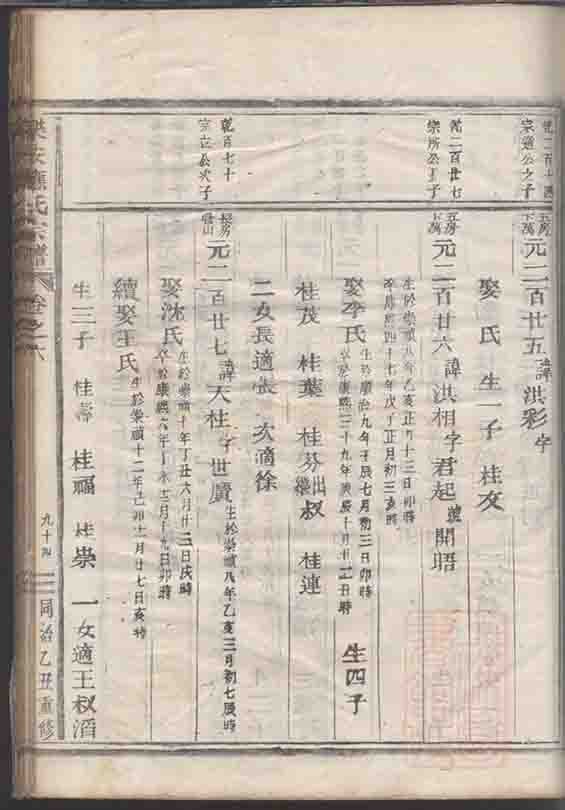 乾二百十四
宗道公之子
五房下萬
元二百廿五諱洪彩字
娶 氏 生一子 桂友
乾二百廿七
宗所公子
五房下萬
元二百廿六諱洪相字君起號開晤
生於崇禎八年乙亥正月十三日卯時
卒康熙四十七年戊子正月初三亥時
娶李氏
生於順治九年壬辰七月初三日卯時
卒康熙二十九年庚辰十月廿二日時
生四子
桂茂 桂葉 桂芬出繼叔 桂連
二女長適張 次適徐
乾百七十
宗立公次子
長房
元二百廿七諱天柱字世廣
生於崇禎八年乙亥三月初七辰時
娶沈氏
生於崇禎十年丁丑六月廿三日戌時
續娶王氏
生於崇禎十二年己卯十一月廿七日亥時
生三子 桂壽 桂福 桂崇 一女適王叔滔
氏宗譜
卷之八
九十四
同治乙丑重修